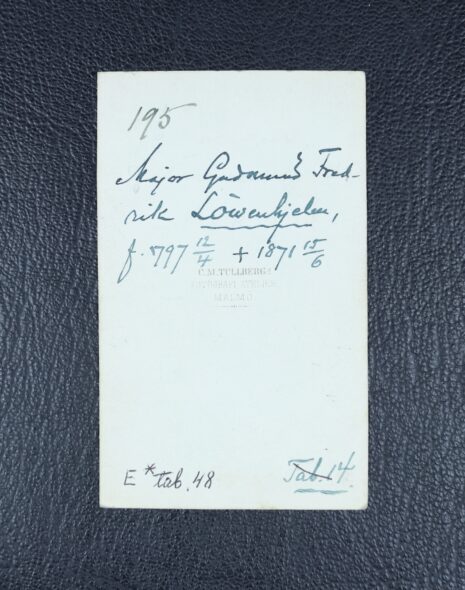 195
Major Gudmund Fred-
rik Löwenhjelm,
f. 1797 12/4 + 1871 15/6
C.M. TULLBERGS
ATELIER
MALMÖ
E * tab. 48
Tab. 14.